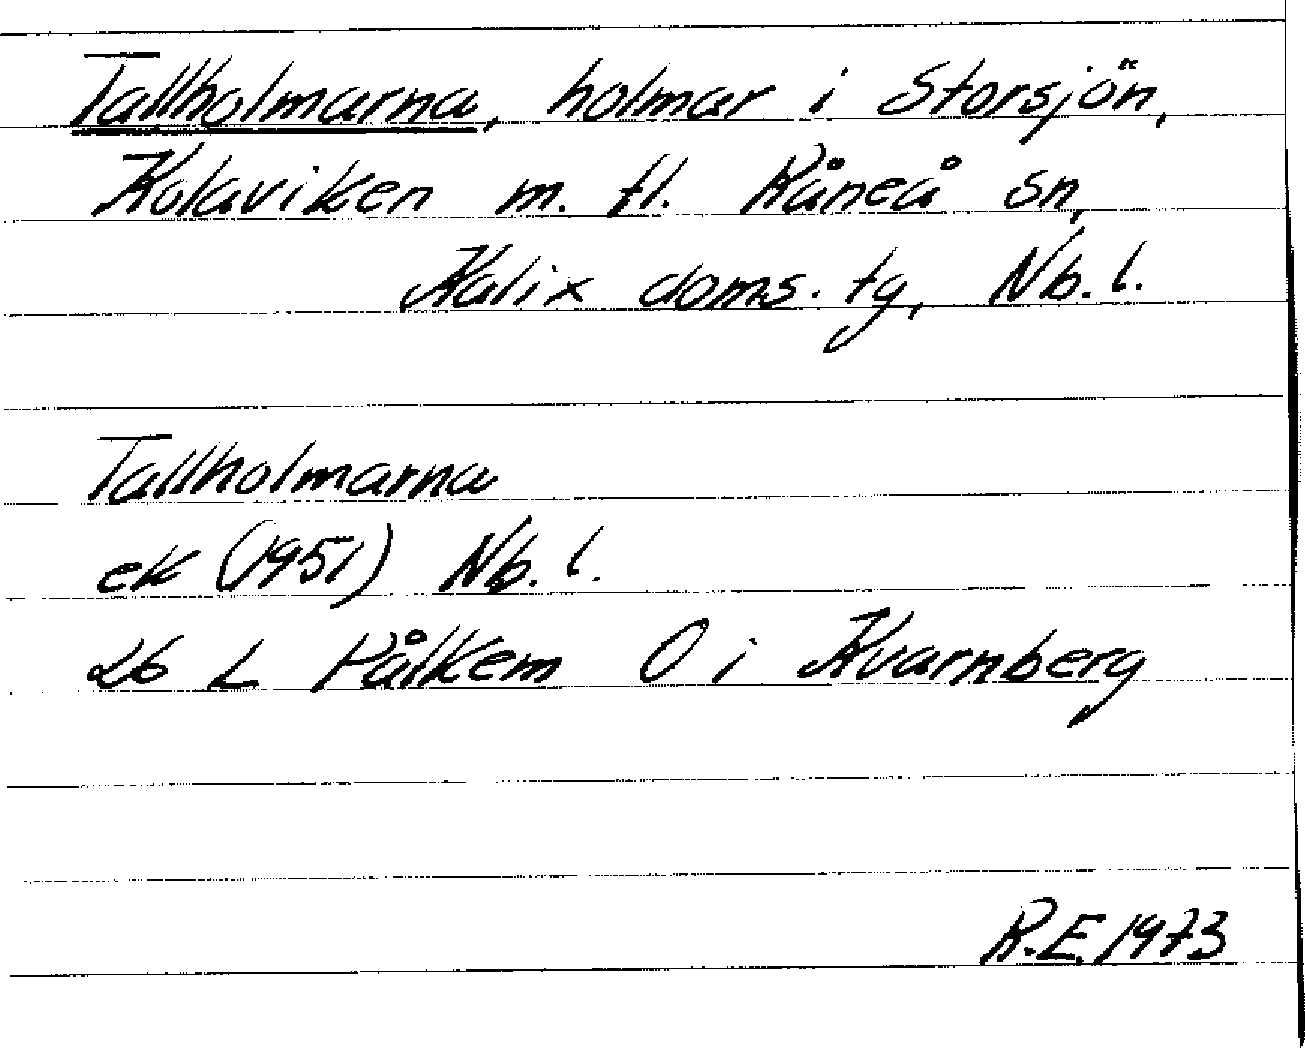 Tallholmarna, holmar i Storsjön,
Kolaviken m. fl. Råneå sn,
Kalix doms. tg, Nb. l.
Tallholmarna
ek (1951) Nb. l.
26 L Pålkem O i Kvarnberg
R.E. 1973